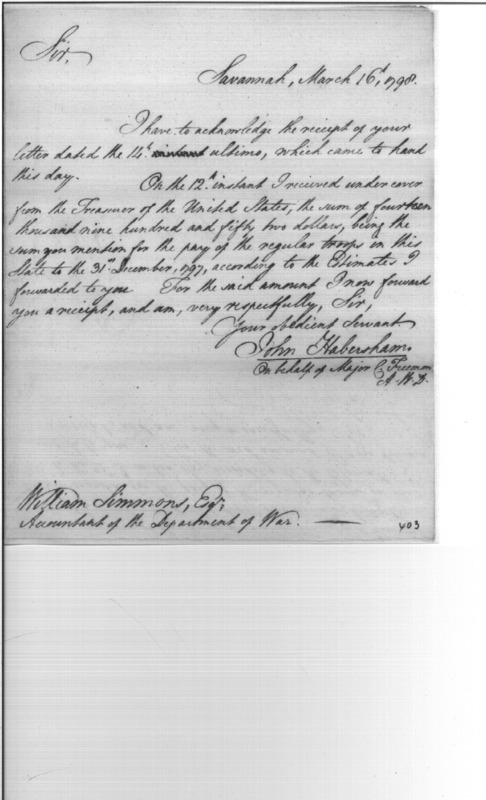 Sir,
Savannah, March 16th, 1798.
I have to acknowledge the receipt of your
letter dated the 14th instant ultimo, which came to hand
this day. On the 12th instant I received under cover
from the Treasurer of the United States, the sum of fourteen
thousand nine hundred and fifty two dollars, being the
sum you mention for the pay of the regular troops in this
State to the 31st December, 1797, according to the Estimates I
forwarded to you. For the said amount I now forward
you a receipt, and am, very respectfully, Sir,
Your obedient Servant
John Habersham.
On behalf of Major C Freeman
A. W. D.
William Simmons, Esqr,
Accountant of the Department of War.
403